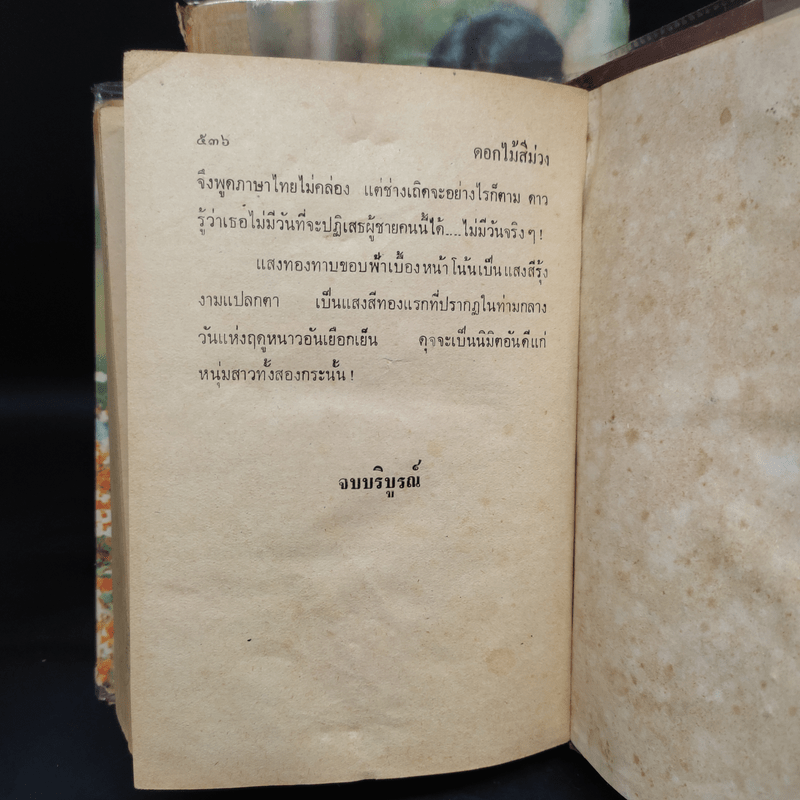 ๕๓๖
ดอกไม้สีม่วง
จึงพูดภาษาไทยไม่คล่อง แต่ช่างเถิดจะอย่างไรก็ตาม ดาว
รู้ว่าเธอไม่มีวันที่จะปฏิเสธผู้ชายคนนี้ได้....ไม่มีวันจริงๆ!
แสงทองทาบขอบฟ้าเบื้องหน้าโน้นเป็นแสงสีรุ้ง
งามแปลกตา เป็นแสงสีทองแรกที่ปรากฏในท่ามกลาง
วันแห่งฤดูหนาวอันเยือกเย็น ดุจจะเป็นนิมิตอันดีแก่
หนุ่มสาวทั้งสองกระนั้น!
จบบริบูรณ์